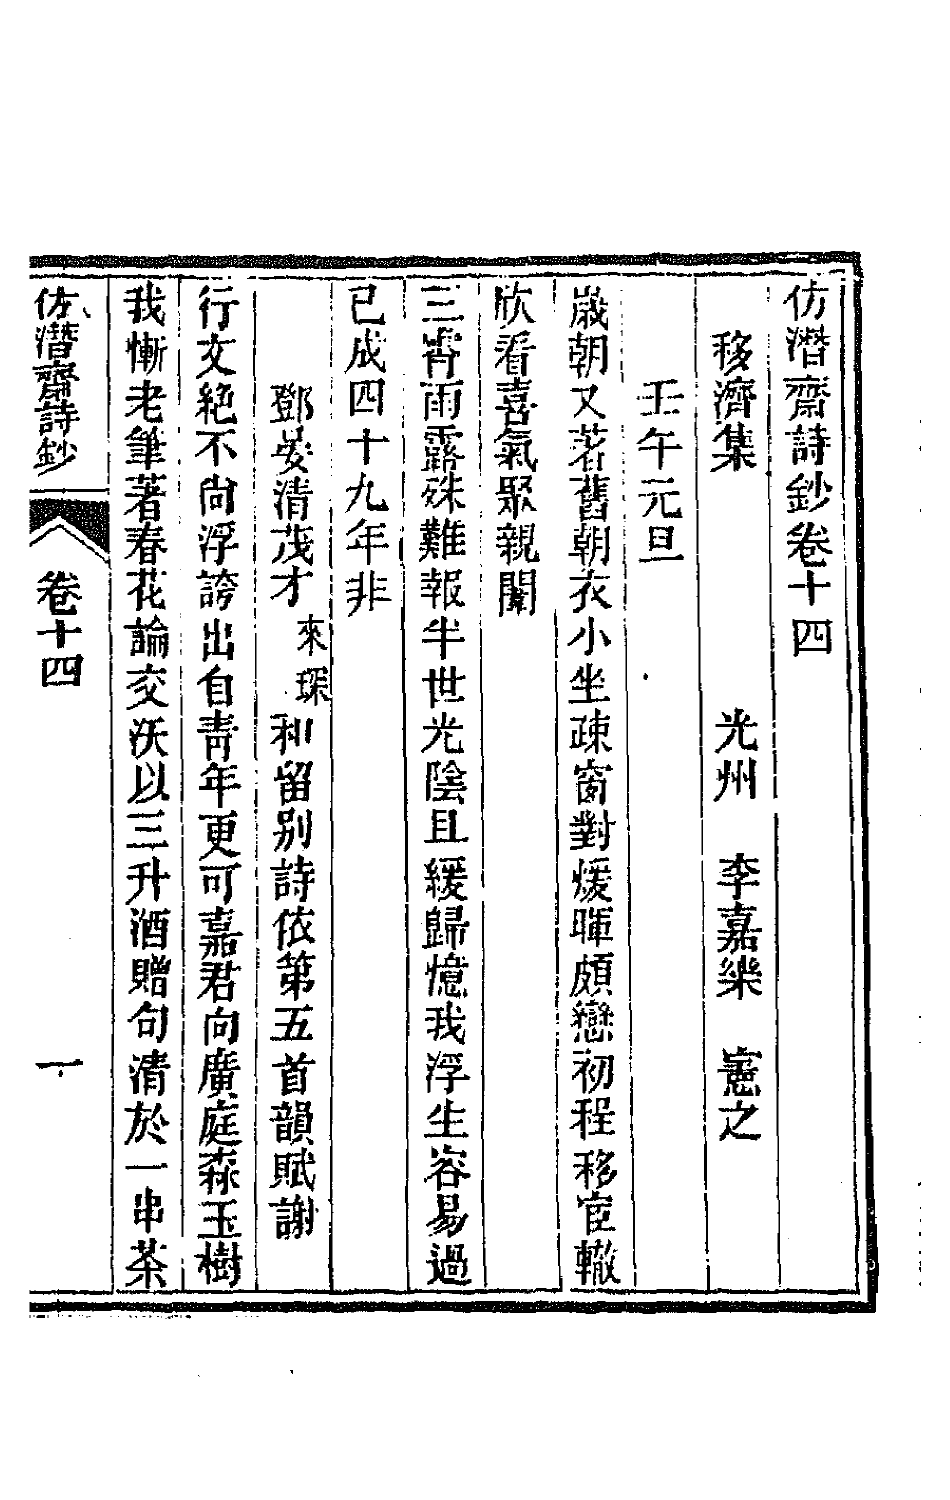 仿潛齋詩鈔卷十四
移濟集　光州　李嘉樂　憲之
壬午元旦
歲朝又茗舊朝衣小坐疎窗對煖暉頗戀初程移宦轍
欣看喜氣聚親闈
三霄雨露殊難報半世光陰且緩歸憶我浮生容易過
已成四十九年非
鄧晏清茂才來琛和留別詩依第五首韻賦謝
行文絕不尙浮誇出自靑年更可嘉君向廣庭森玉樹
我慚老筆著春花論交沃以三升酒贈句清於一串茶
仿潛齋詩鈔　卷十四　一